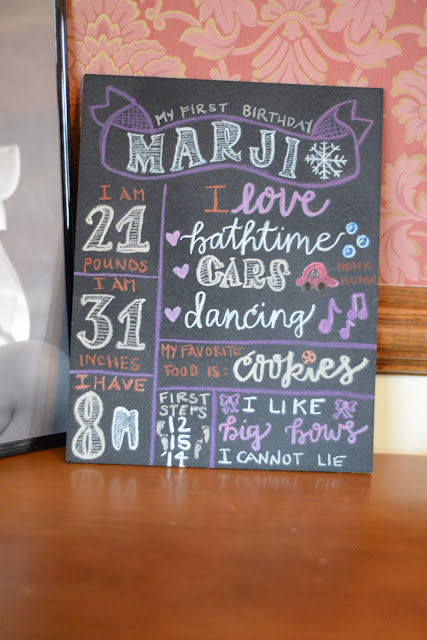 MY FIRST BIRTHDAY
MARJI
I AM
21
POUNDS
I AM
31
INCHES
I HAVE
8
I love
bathtime
CARS
HONK
HONK
dancing
MY FAVORITE
FOOD IS:
cookies
FIRST
STEPS
12
15
14
I LIKE
big bows
I CANNOT LIE